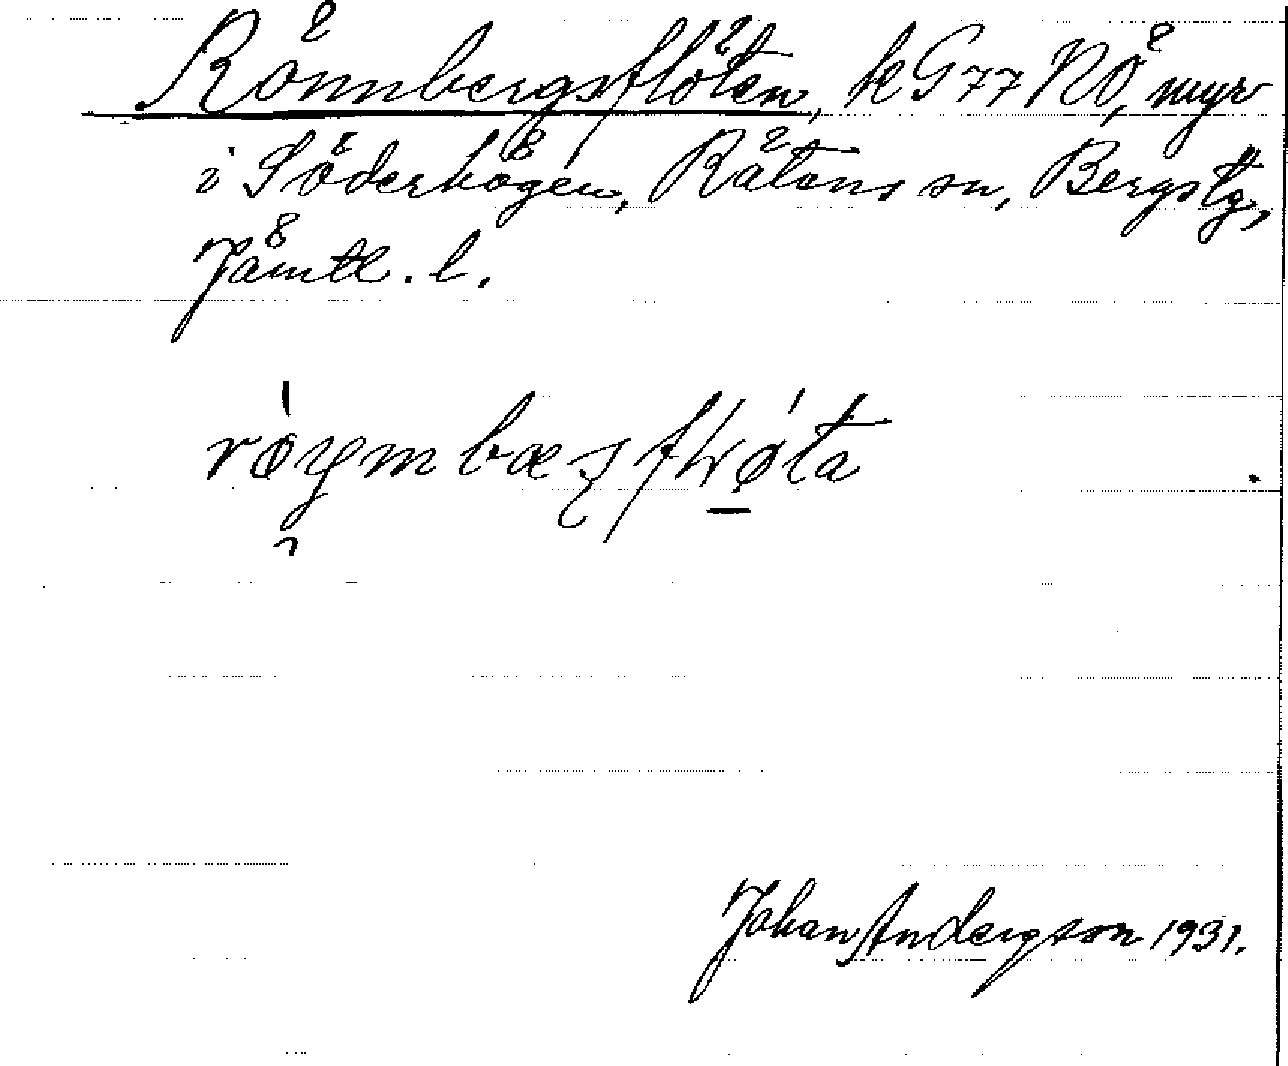 Rönnbergsflöten, k G 77 NÖ, myr
i Söderhögen, Rätans sn, Bergs tg,
Jämtl. l.
Johan Anderzson 1931.